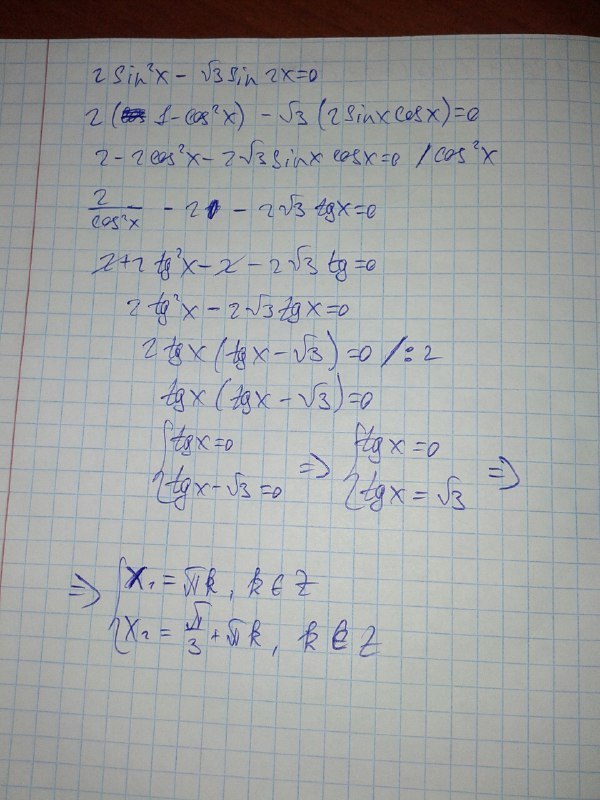 2 sin²x - √3 sin 2x=0
2 (1-cos²x) - √3 (2sinx cosx)=0
2-2cos²x-2√3 sinx cosx=0 /cos²x
2/cos²x - 2 - 2√3 tgx=0
2+2 tg²x-2-2√3 tg=0
2 tg²x-2√3 tgx=0
2 tgx (tgx-√3)=0 /:2
tgx (tgx-√3)=0
{tgx=0 => {tgx=0 =>
{tgx-√3=0 {tgx=√3
=> {x₁=πk, k∈Z
{x₂=π/3+πk, k∈Z